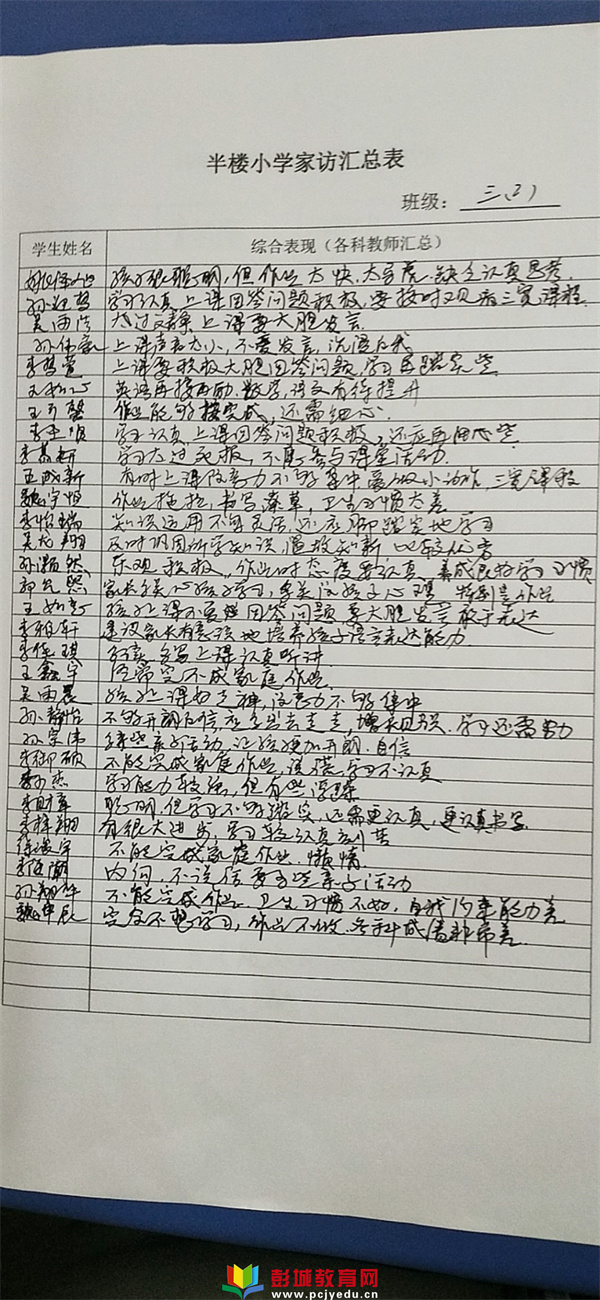 半楼小学家访汇总表
班级： 三（2）
学生姓名 综合表现（各科教师汇总）
孩子很聪明，但作业太快、太马虎、缺乏认真思考.
学习认真上课回答问题积极，要按时观看三宽课程
吴雨 太过文静上课要大胆发言.
孙伟 上课声音太小，不爱发言，沉溺自我
上课要积极大胆回答问题，学习再踏实些
英语再接再励，数学，语文有待提升
作业能够按完成，还需细心.
学习认真上课回答问题积极，还应再细心些.
学习太过死板，不能参与课堂活动.
王成新 有时上课注意力不够集中爱做小动作，三宽课程
魏宇恒 作业拖拉，书写潦草，卫生习惯太差
李怡瑞 知识运用不够灵活，还应脚踏实地学习
吴龙翔 及时巩固所学知识，温故知新 比较优言
孙灏然 乐观积极，作业时态度要认真，养成良好学习习惯
郭 熙 家长多关心孩子学习，多关注孩子心理，特别是作业
王 孩子上课不爱回答问题要大胆发言敢于表达
李雅轩 建议家长有意识地培养孩子语言表达能力.
李佳琪 多读，多写上课认真听讲.
王鑫宇 经常完不成家庭作业.
吴雨晨 孩子上课好走神，注意力不够集中
孙静怡 不够开朗自信，应多出去走走，增长见识，学习还需努力
孙宗伟 多些亲子活动，让孩子更加开朗、自信
李御硕 不能完成家庭作业，读书，学习不认真
杰 学习能力较强，但有些浮躁
李财库 聪明，但学习不够踏实，还需更认真，更认真书写.
李梓翔 有很大进步，学习较认真刻苦
徐 宇 不能完成家庭作业，懒惰.
李 潮 内向，不说话要多些亲子活动
孙翔 不能完成作业，卫生习惯不好，自我约束能力差
魏申辰 完全不想学习，作业不做.各科成绩非常差.
彭城教育网
www.pcjyedu.cn